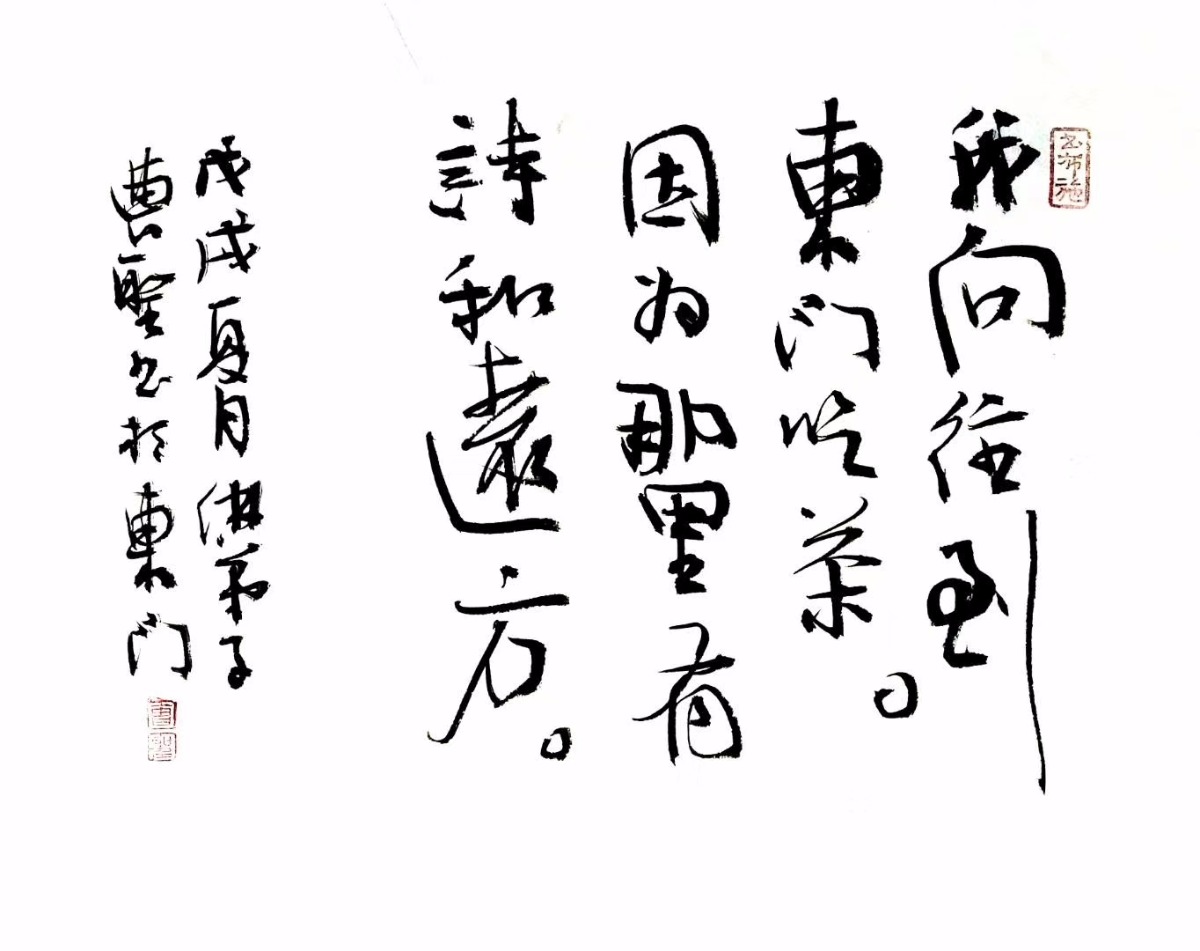 书布施
我向往到
東门吃茶。
因为那里有
詩和遠方。
戊戌夏月佛弟子
曹聖书於東门